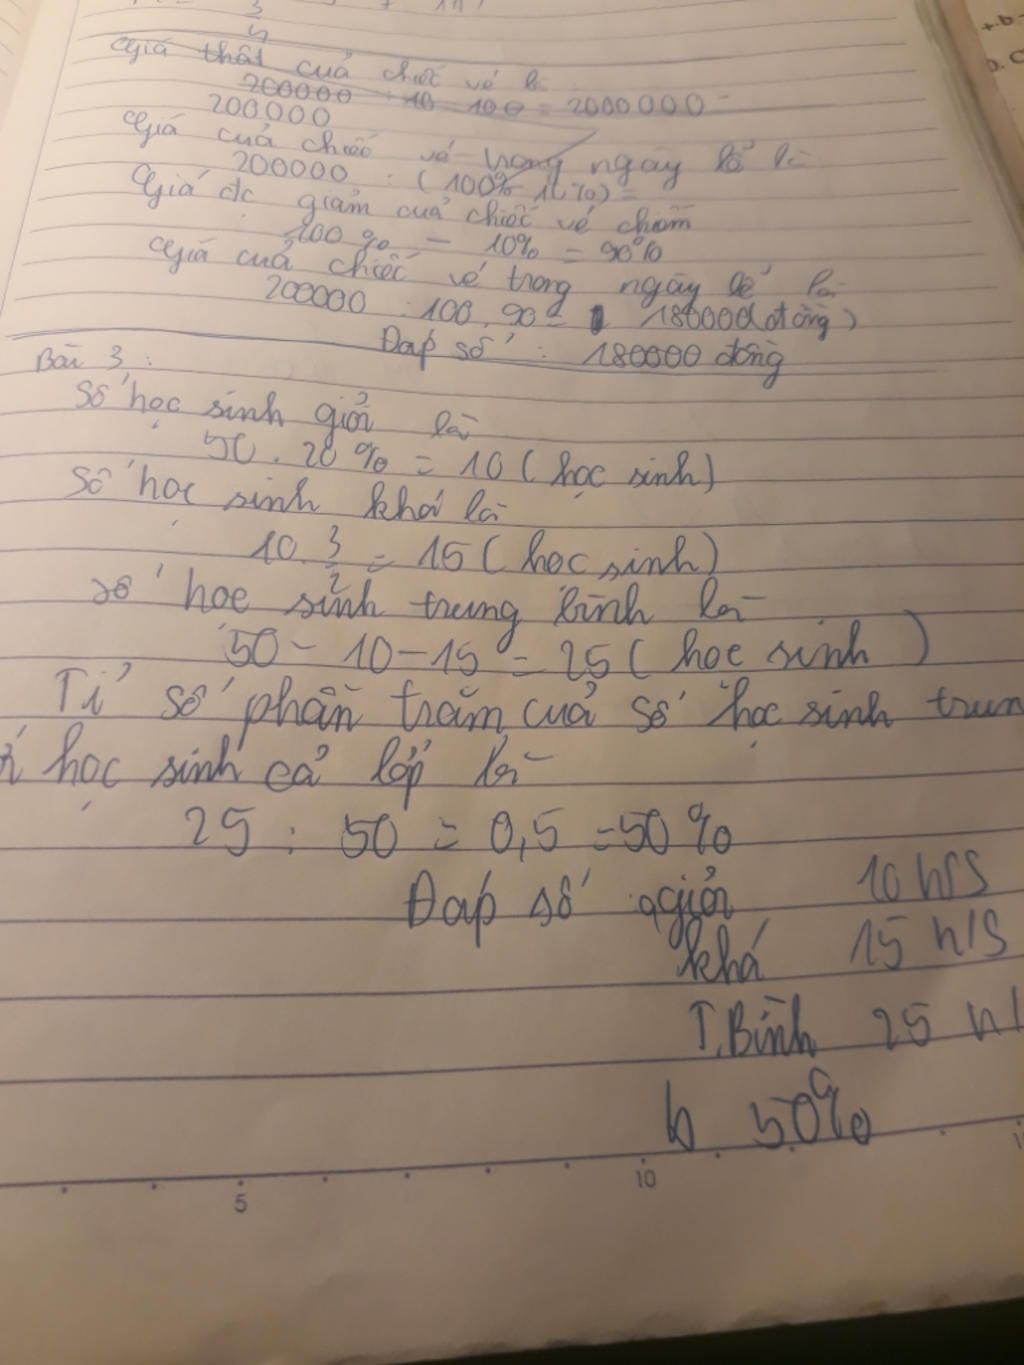 3
4
Giá thật của chiếc vé là
200000 : 10 . 100 = 2000000
200000
Giá của chiếc vé trong ngày lễ là
200000 : (100% - 10%) =
Giá đc giảm của chiếc vé chiếm
100% - 10% = 90%
Giá của chiếc vé trong ngày lễ là
200000 : 100 . 90 = 180000 (đồng)
Đáp số : 180000 đồng
Bài 3 :
Số học sinh giỏi là
50 . 20% = 10 (học sinh)
Số học sinh khá là
10 . 3/2 = 15 (học sinh)
số học sinh trung bình là
50 - 10 - 15 = 25 (học sinh)
Tỉ số phần trăm của số học sinh trun
học sinh cả lớp là
25 : 50 = 0,5 = 50%
Đáp số giỏi 10 h/s
khá 15 h/s
T.Bình 25 h/
b 50%
5 10